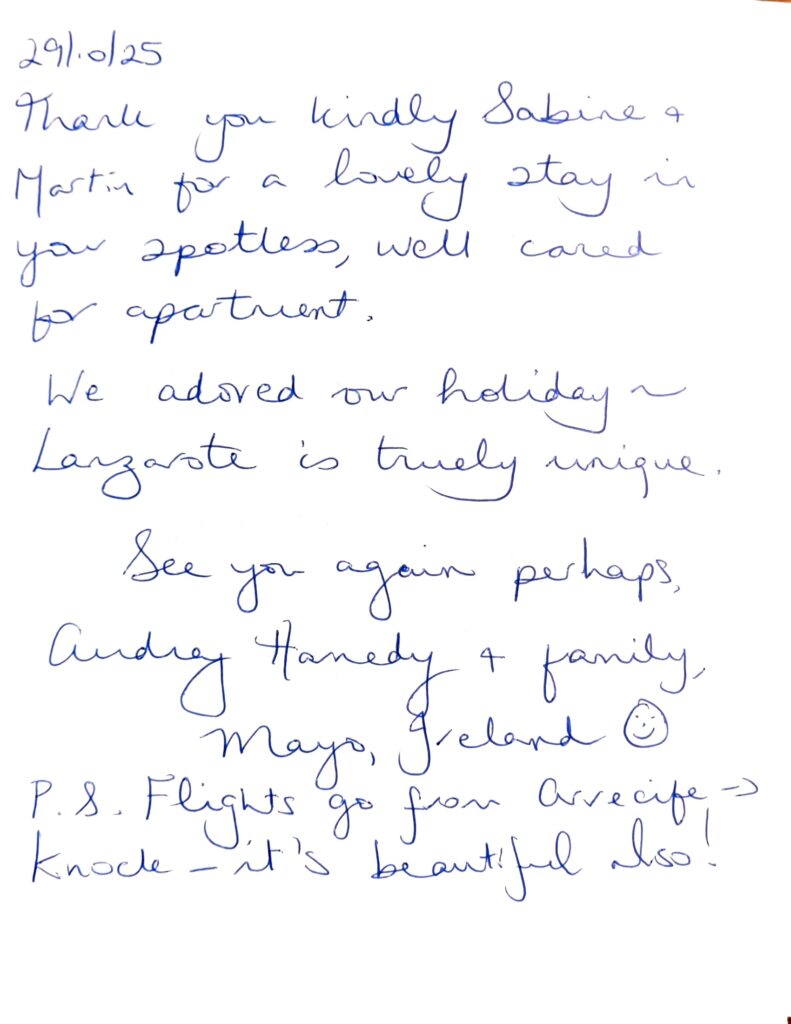 29/10/25
Thank you kindly Sabine +
Martin for a lovely stay in
your spotless, well cared
for apartment.
We adored our holiday ~
Lanzarote is truely unique.
See you again perhaps,
Audrey + family,
Mayo, Ireland ☺
P.S. Flights go from Arrecife →
Knock – it's beautiful also!